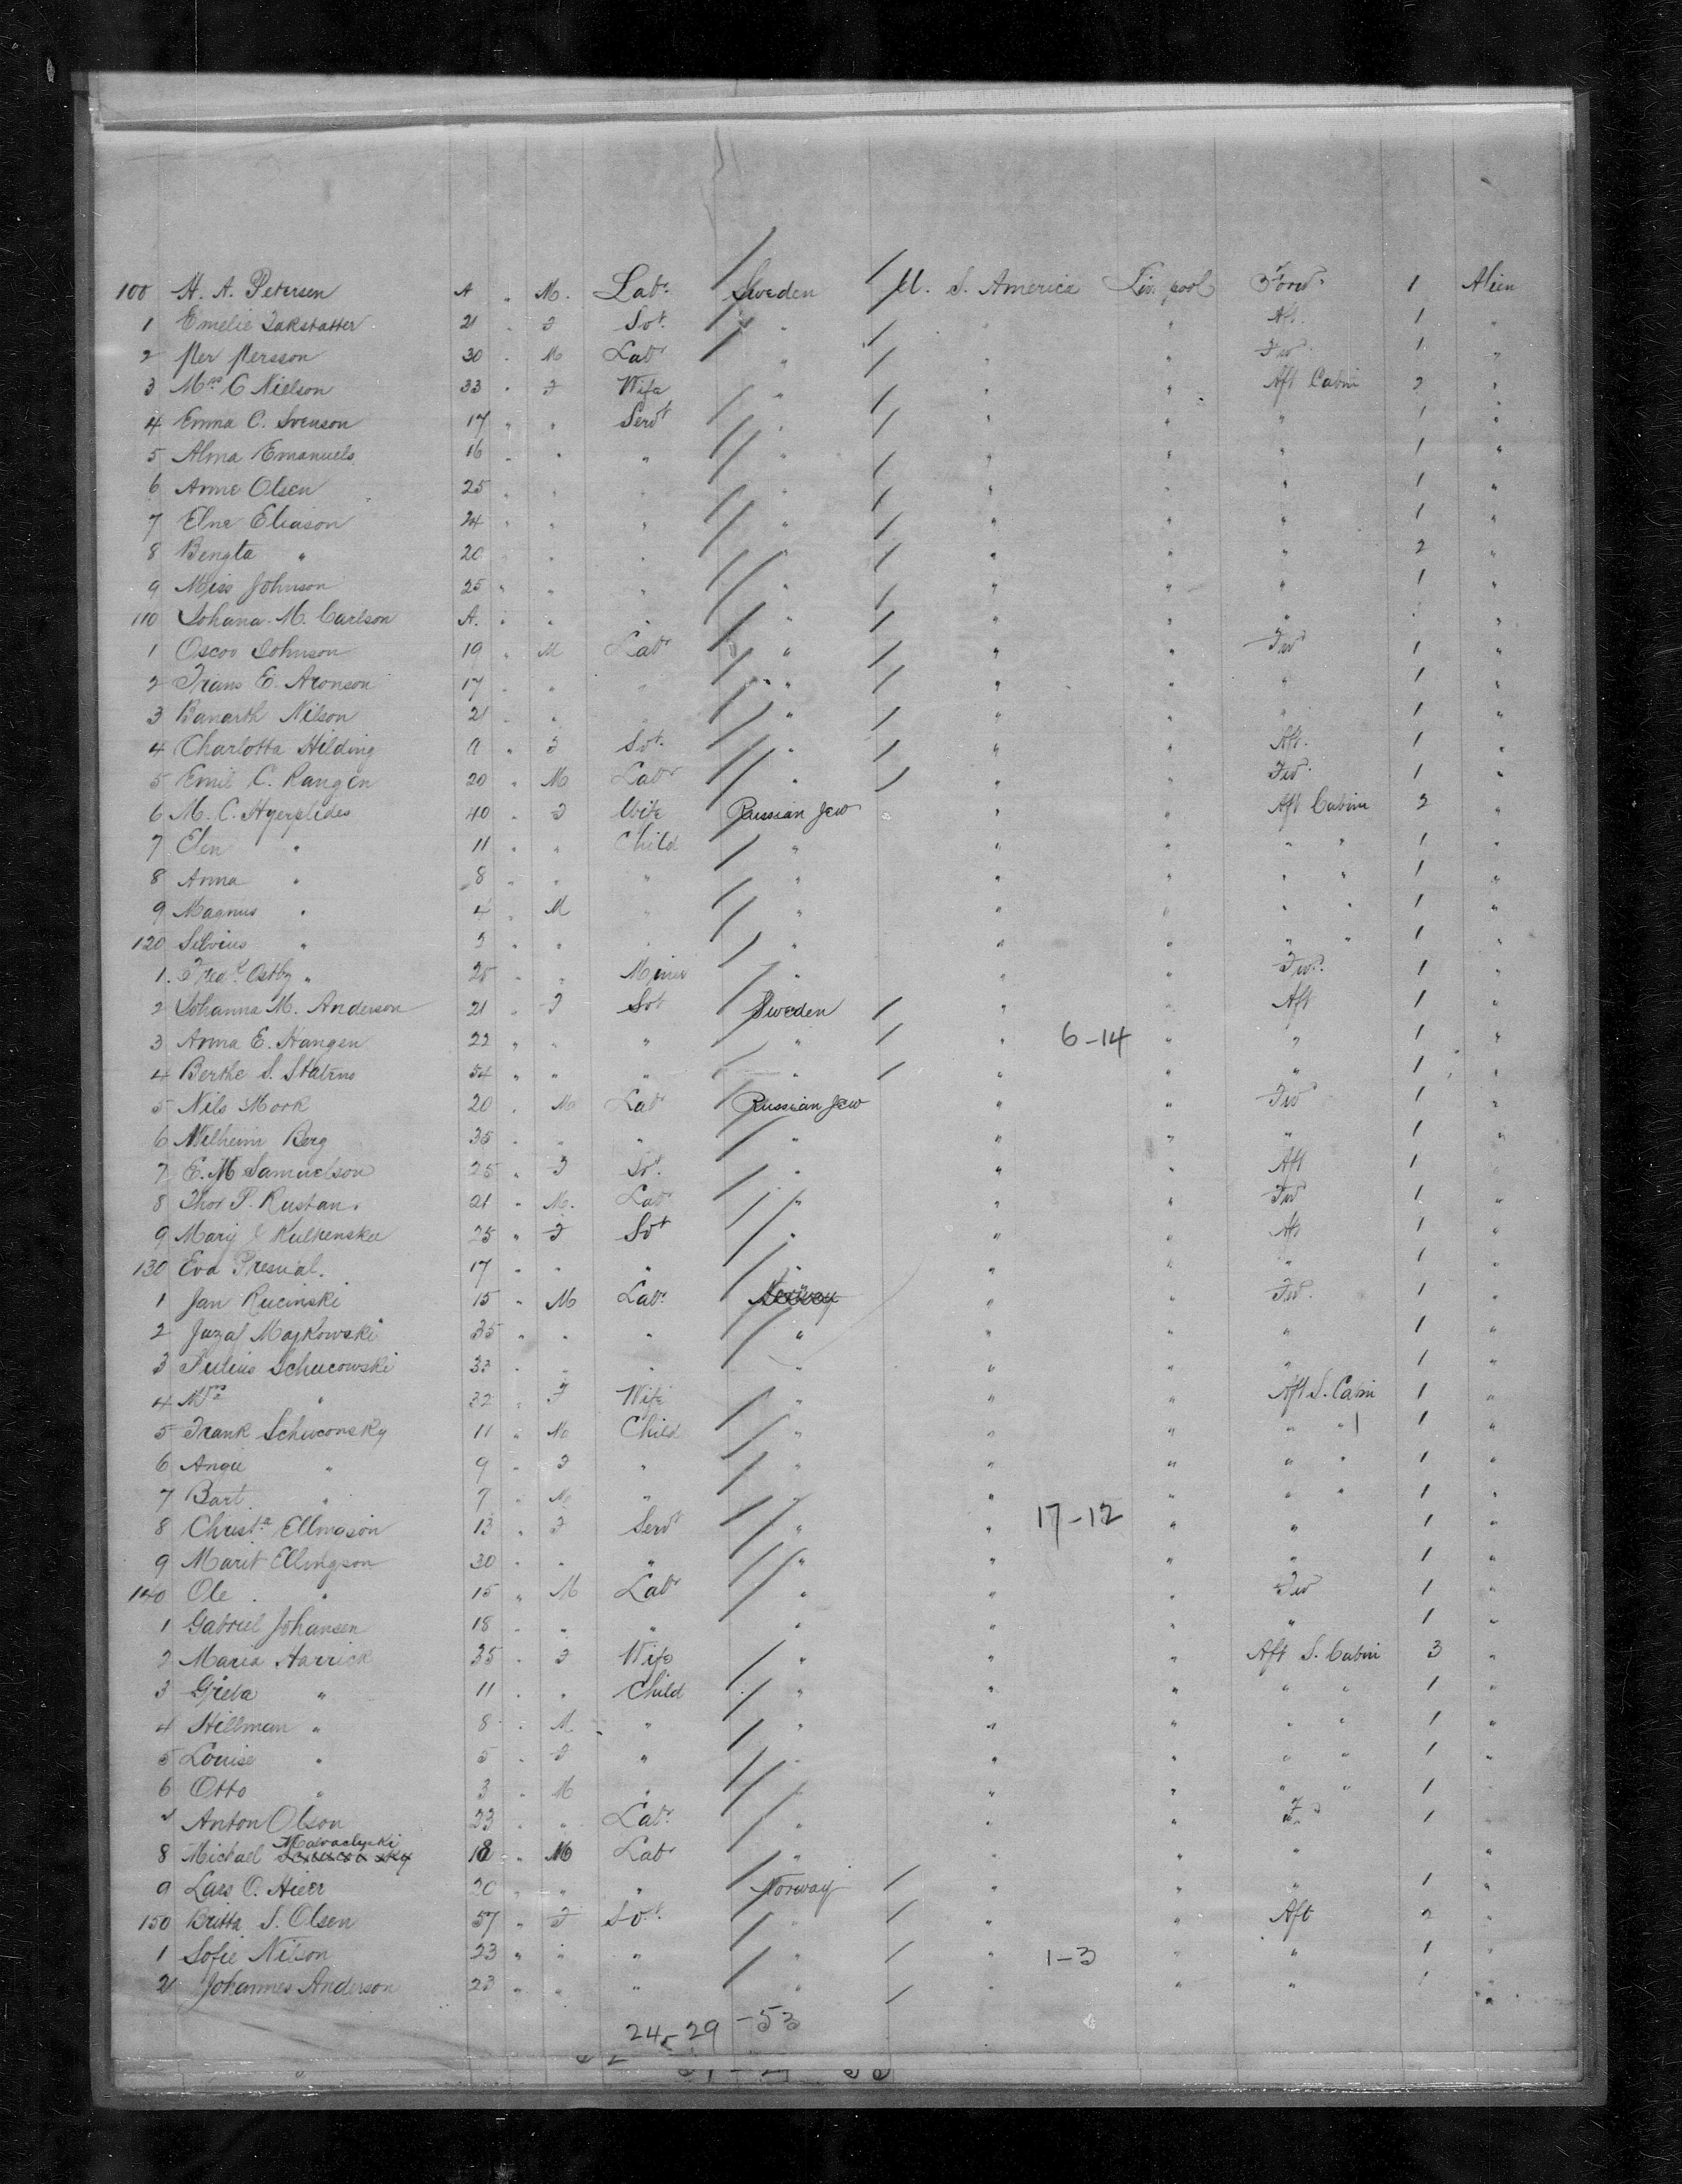 100 H. A. Petersen A " M. Labr Sweden U. S. America Liv. pool Forwd. 1 Alien
1 Emelie 21 " F Svt. " " " Aft. 1 "
2 Per Persson 30 " M Labr " " " Fwd. 1 "
3 Mrs C Nielson 33 " F Wife " " " Aft Cabin 2 "
4 Emma C. Svenson 17 " " Servt " " " " 1 "
5 Alma Emanuels 16 " " " " " " " 1 "
6 Anne Olsen 25 " " " " " " " 1 "
7 Elne Eliason 24 " " " " " " " 1 "
8 Bengta " 20 " " " " " " " 2 "
9 Miss Johnson 25 " " " " " " " 1 "
110 Johana M. Carlson A. " " " " " " " "
1 Oscar Johnson 19 " M Labr " " " Fwd 1 "
2 Frans E. Aronson 17 " " " " " " " 1 "
3 Banarth Nilson 21 " " " " " " " 1 "
4 Charlotta Hilding A " F Svt. " " " Aft. 1 "
5 Emil C. Rangen 20 " M Labr " " " Fwd. 1 "
6 M. C. 40 " F Wife Russian Jew " " Aft Cabin 2 "
7 Elen " 11 " " Child " " " " " 1 "
8 Anna " 8 " " " " " " " " 1 "
9 Magnus " 4 " M " " " " " " 1 "
120 Selvius " 3 " " " " " " " " 1 "
1. Fredk Ostby " 25 " " Miner " " " Fwd. 1 "
2 Johanna M. Anderson 21 " F Svt Sweden " " Aft 1 "
3 Anna E. Hangen 22 " " " " " 6-14 " " 1 "
4 Berthe S. 54 " " " " " " " 1 "
5 Nils Mork 20 " M Labr Russian Jew " " Fwd 1 "
6 Wilheim Berg 35 " " " " " " " 1 "
7 E. M Samuelson 25 " F Svt. " " " Aft 1 "
8 Thor P. Rustan. 21 " M. Labr " " " Fwd 1 "
9 Mary 25 " F Svt " " " Aft 1 "
130 Eva Presual. 17 " " " " " " " 1 "
1 Jan Rucinski 15 " M Labr Norway " " Fwd. 1 "
2 Jazaf Majkowski 35 " " " " " " " 1 "
3 Julius Schucowski 33 " " " " " " " 1 "
4 Mrs " 32 " F Wife " " " Aft S. Cabin 1 "
5 Frank Schuconsky 11 " M Child " " " " " 1 "
6 Angie " 9 " F " " " " " " 1 "
7 Bart " 7 " M " " " " " " 1 "
8 Christa Ellingson 13 " F Servt " " 17-12 " " 1 "
9 Marit Ellingson 30 " " " " " " " 1 "
140 Ole " 15 " M Labr " " " Fwd 1 "
1 Gabriel Johansen 18 " " " " " " " 1 "
2 Maria Harrick 35 " F Wife " " " Aft S. Cabin 3 "
3 Greta " 11 " " Child " " " " " 1 "
4 Hillman " 8 " M " " " " " " 1 "
5 Louise " 5 " F " " " " " " 1 "
6 Otto " 3 " M " " " " " " 1 "
7 Anton Olson 23 " " Labr " " " 1 "
8 Michael 18 " M Labr " " " "
9 Lars O. 20 " " " Norway " " " 1 "
150 Britta S. Olsen 57 " F Svt. " " " Aft 2 "
1 Sofie Nilson 23 " " " " " 1-3 " " 1 "
2 Johannes Anderson 23 " " " " " " " 1 "
24-29-53